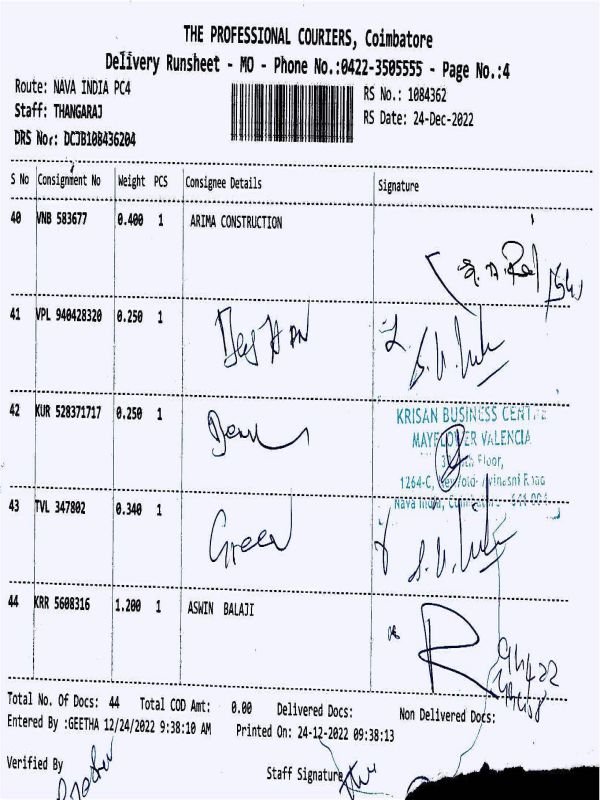 THE PROFESSIONAL COURIERS, Coimbatore
Delivery Runsheet - MO - Phone No.:0422-3505555 - Page No.:4
Route: NAVA INDIA PC4
RS No.: 1084362
Staff: THANGARAJ
RS Date: 24-Dec-2022
DRS Nor: DCJB108436204
S No Consignment No Weight PCS Consignee Details Signature
40 VNB 583677 0.400 1 ARIMA CONSTRUCTION
41 VPL 940428320 0.250 1
42 KUR 528371717 0.250 1
KRISAN BUSINESS
MAYFLOWER VALENCIA
Floor,
1264-C,
Nava India,
43 TVL 347802 0.340 1 Green
44 KRR 5608316 1.200 1 ASWIN BALAJI
Total No. Of Docs: 44 Total COD Amt: 0.00 Delivered Docs: Non Delivered Docs:
Entered By :GEETHA 12/24/2022 9:38:10 AM Printed On: 24-12-2022 09:38:13
Verified By
Staff Signature